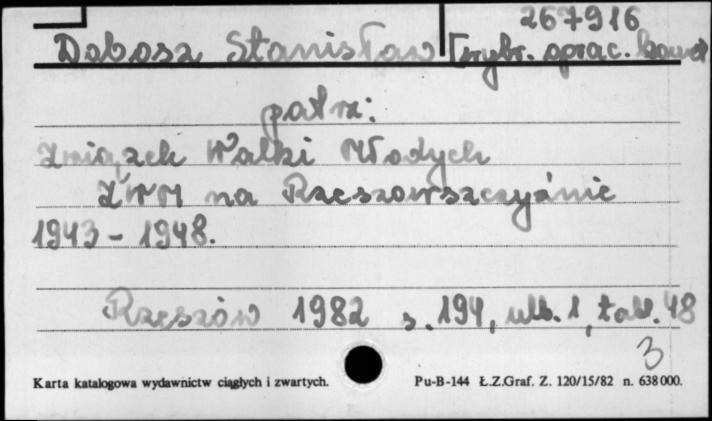 267916
Dobosz Stanisław [wybr. oprac.
patrz:
Związek Walki Młodych
ZWM na Rzeszowszczyźnie
1943 - 1948.
Rzeszów 1982 s. 194, ulb. 1, tabl. 48
3
Karta katalogowa wydawnictw ciągłych i zwartych. Pu-B-144 Ł.Z.Graf. Z. 120/15/82 n. 638000.